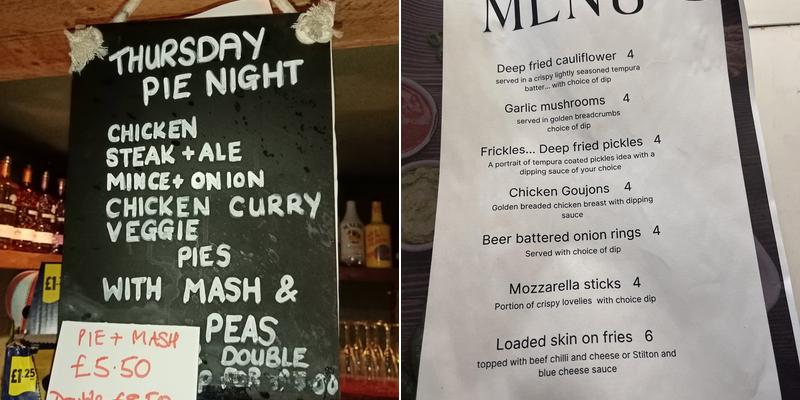 THURSDAY
PIE NIGHT
CHICKEN
STEAK + ALE
MINCE + ONION
CHICKEN CURRY
VEGGIE
PIES
WITH MASH &
PEAS
DOUBLE
PIE + MASH
£5.50
£1.25
MENU
Deep fried cauliflower 4
served in a crispy lightly seasoned tempura
batter... with choice of dip
Garlic mushrooms 4
served in golden breadcrumbs
choice of dip
Frickles... Deep fried pickles 4
A portrait of tempura coated pickles idea with a
dipping sauce of your choice
Chicken Goujons 4
Golden breaded chicken breast with dipping
sauce
Beer battered onion rings 4
Served with choice of dip
Mozzarella sticks 4
Portion of crispy lovelies with choice dip
Loaded skin on fries 6
topped with beef chilli and cheese or Stilton and
blue cheese sauce